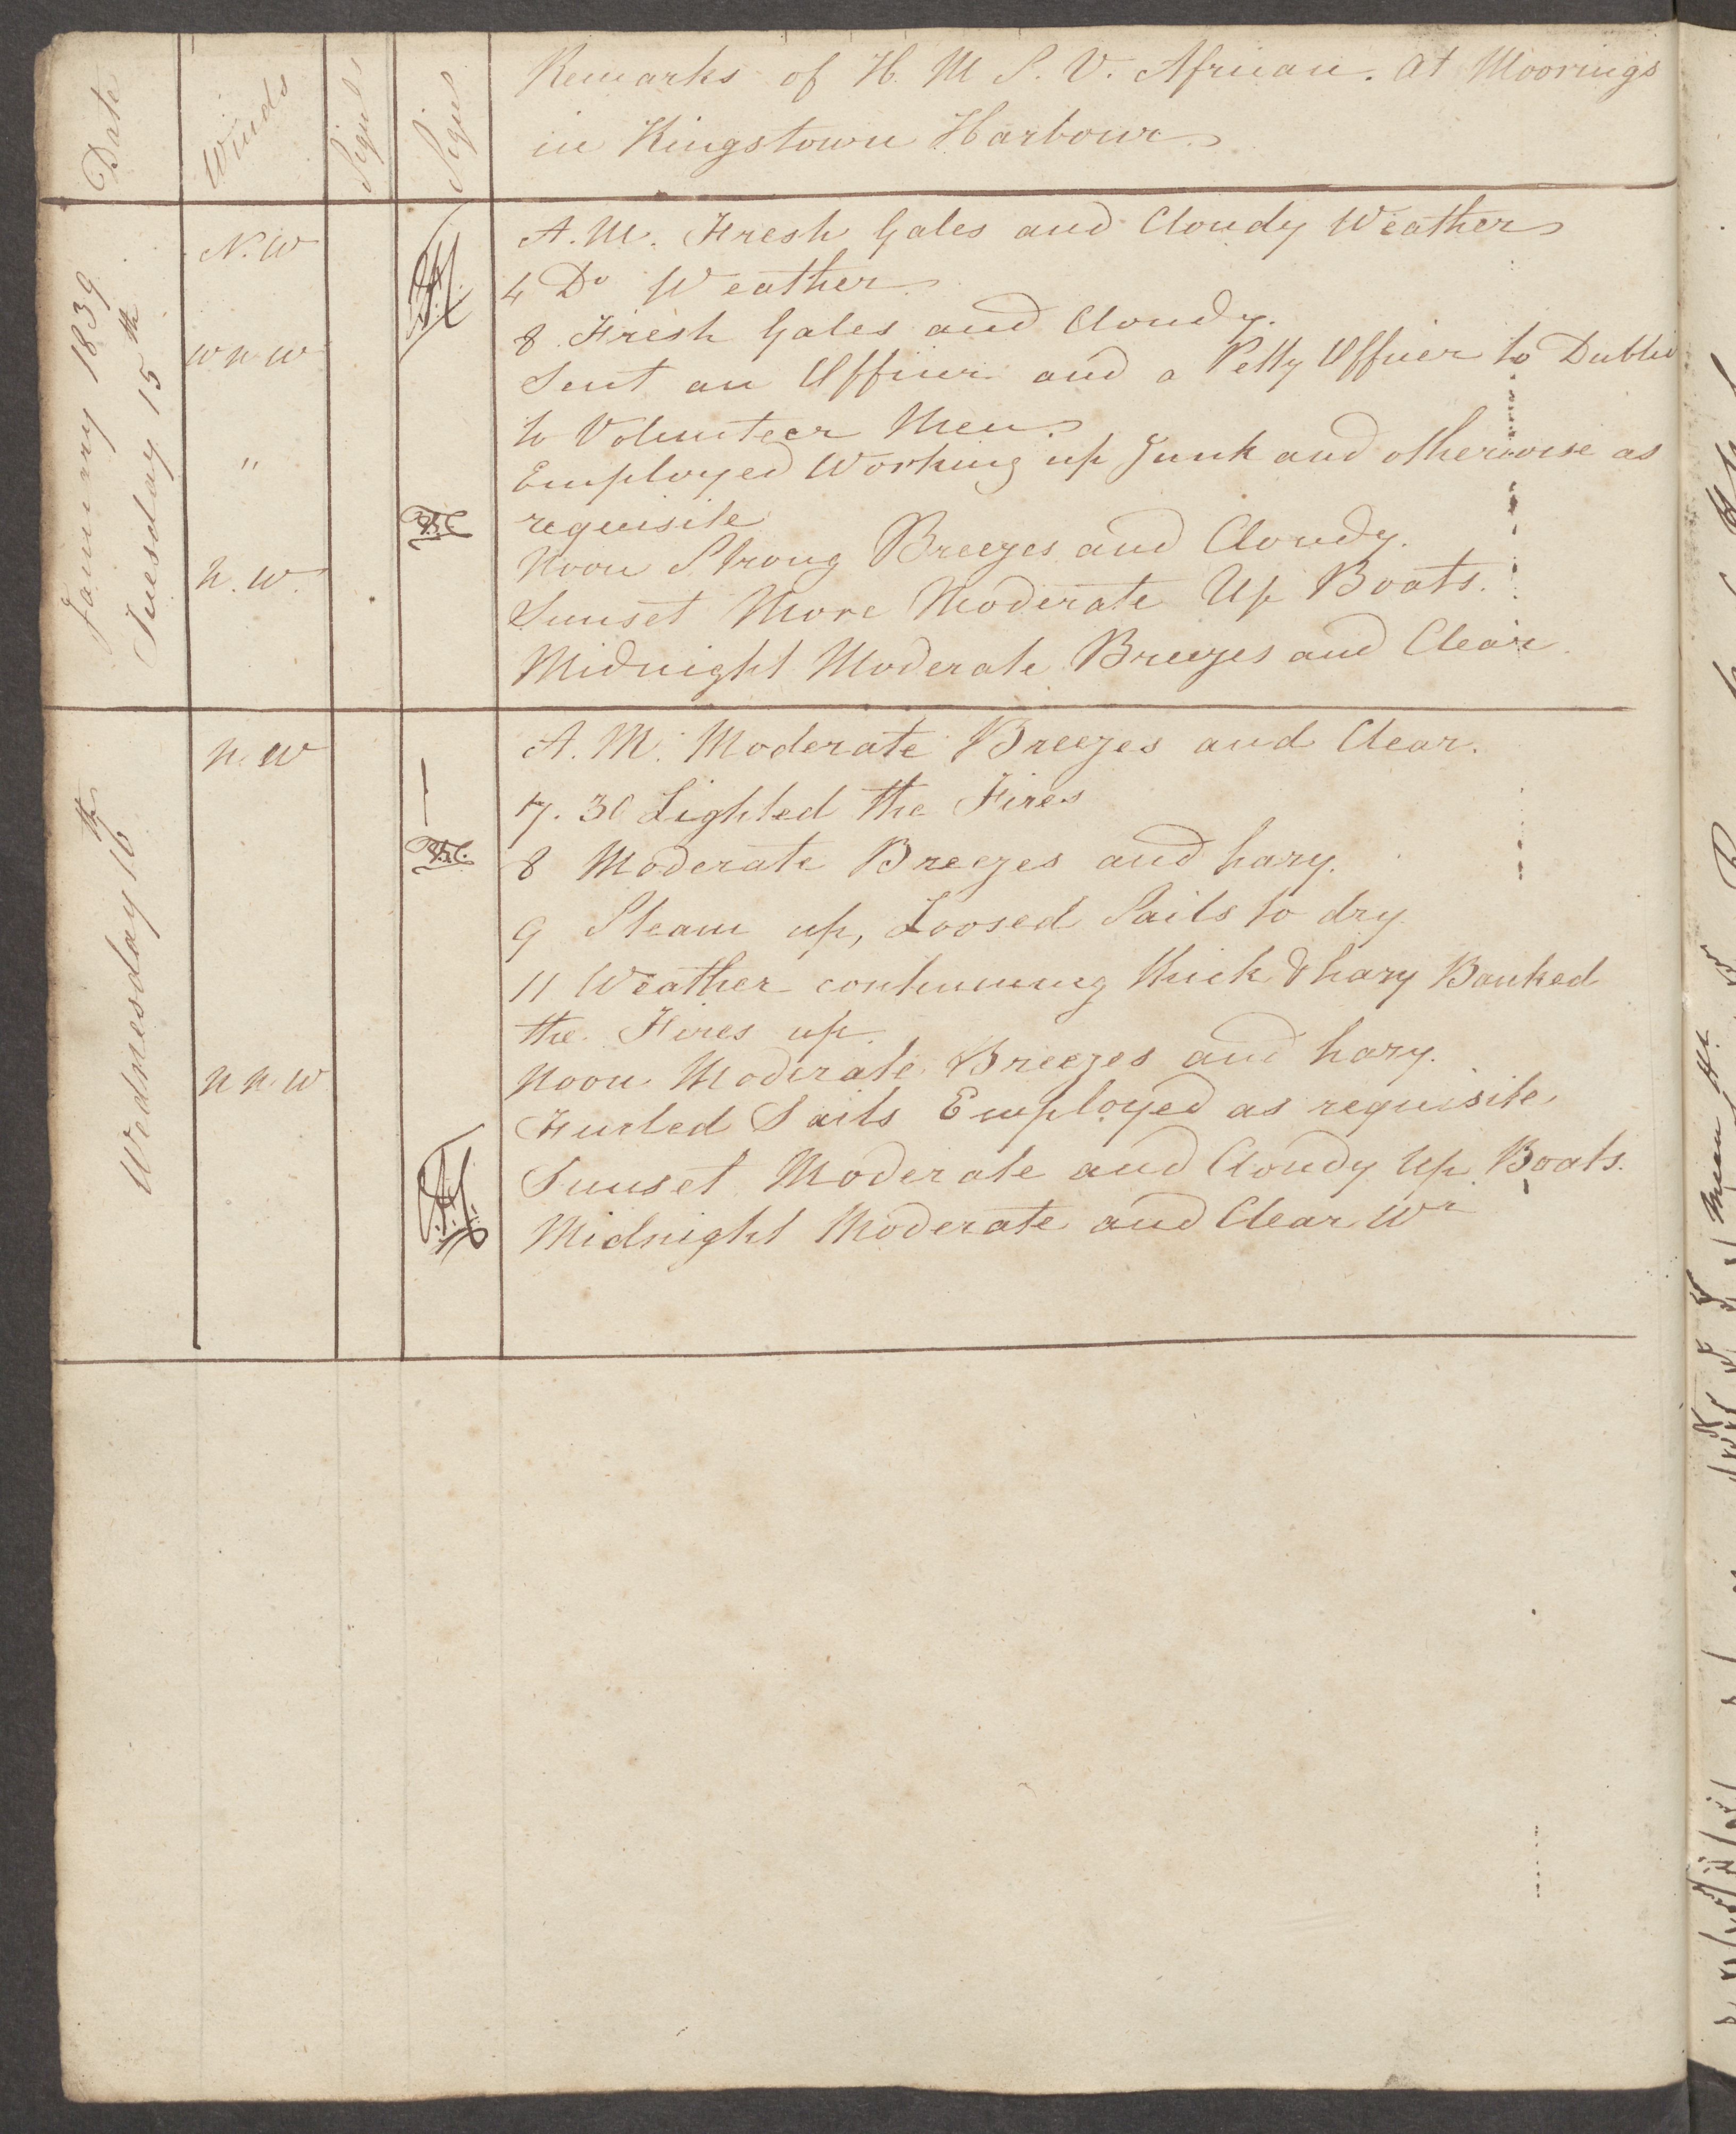 Date
Winds
Sigls
Sigus
Remarks of H. M S. V. African. At Moorings
in Kingstown Harbour
January 1839
Tuesday 15th
N. W
W N W
"
N. W.
A. M. Fresh Gales and Cloudy Weather
4 Do Weather
8 Fresh Gales and Cloudy.
Sent an Officer and a Petty Officer to Dublin
to Volunteer Men.
Employed Working up Junk and otherwise as
requisite
Noon Strong Breezes and Cloudy.
Sunset More Moderate Up Boats.
Midnight Moderate Breezes and Clear.
Wednesday 16th
N. W
N N. W
A. M. Moderate Breezes and Clear.
7. 30 Lighted the Fires
8 Moderate Breezes and hazy.
9 Steam up, Loosed Sails to dry
11 Weather continuing thick & hazy Banked
the Fires up.
Noon Moderate Breezes and hazy.
Furled Sails Employed as requisite.
Sunset Moderate and Cloudy Up Boats.
Midnight Moderate and Clear Wr